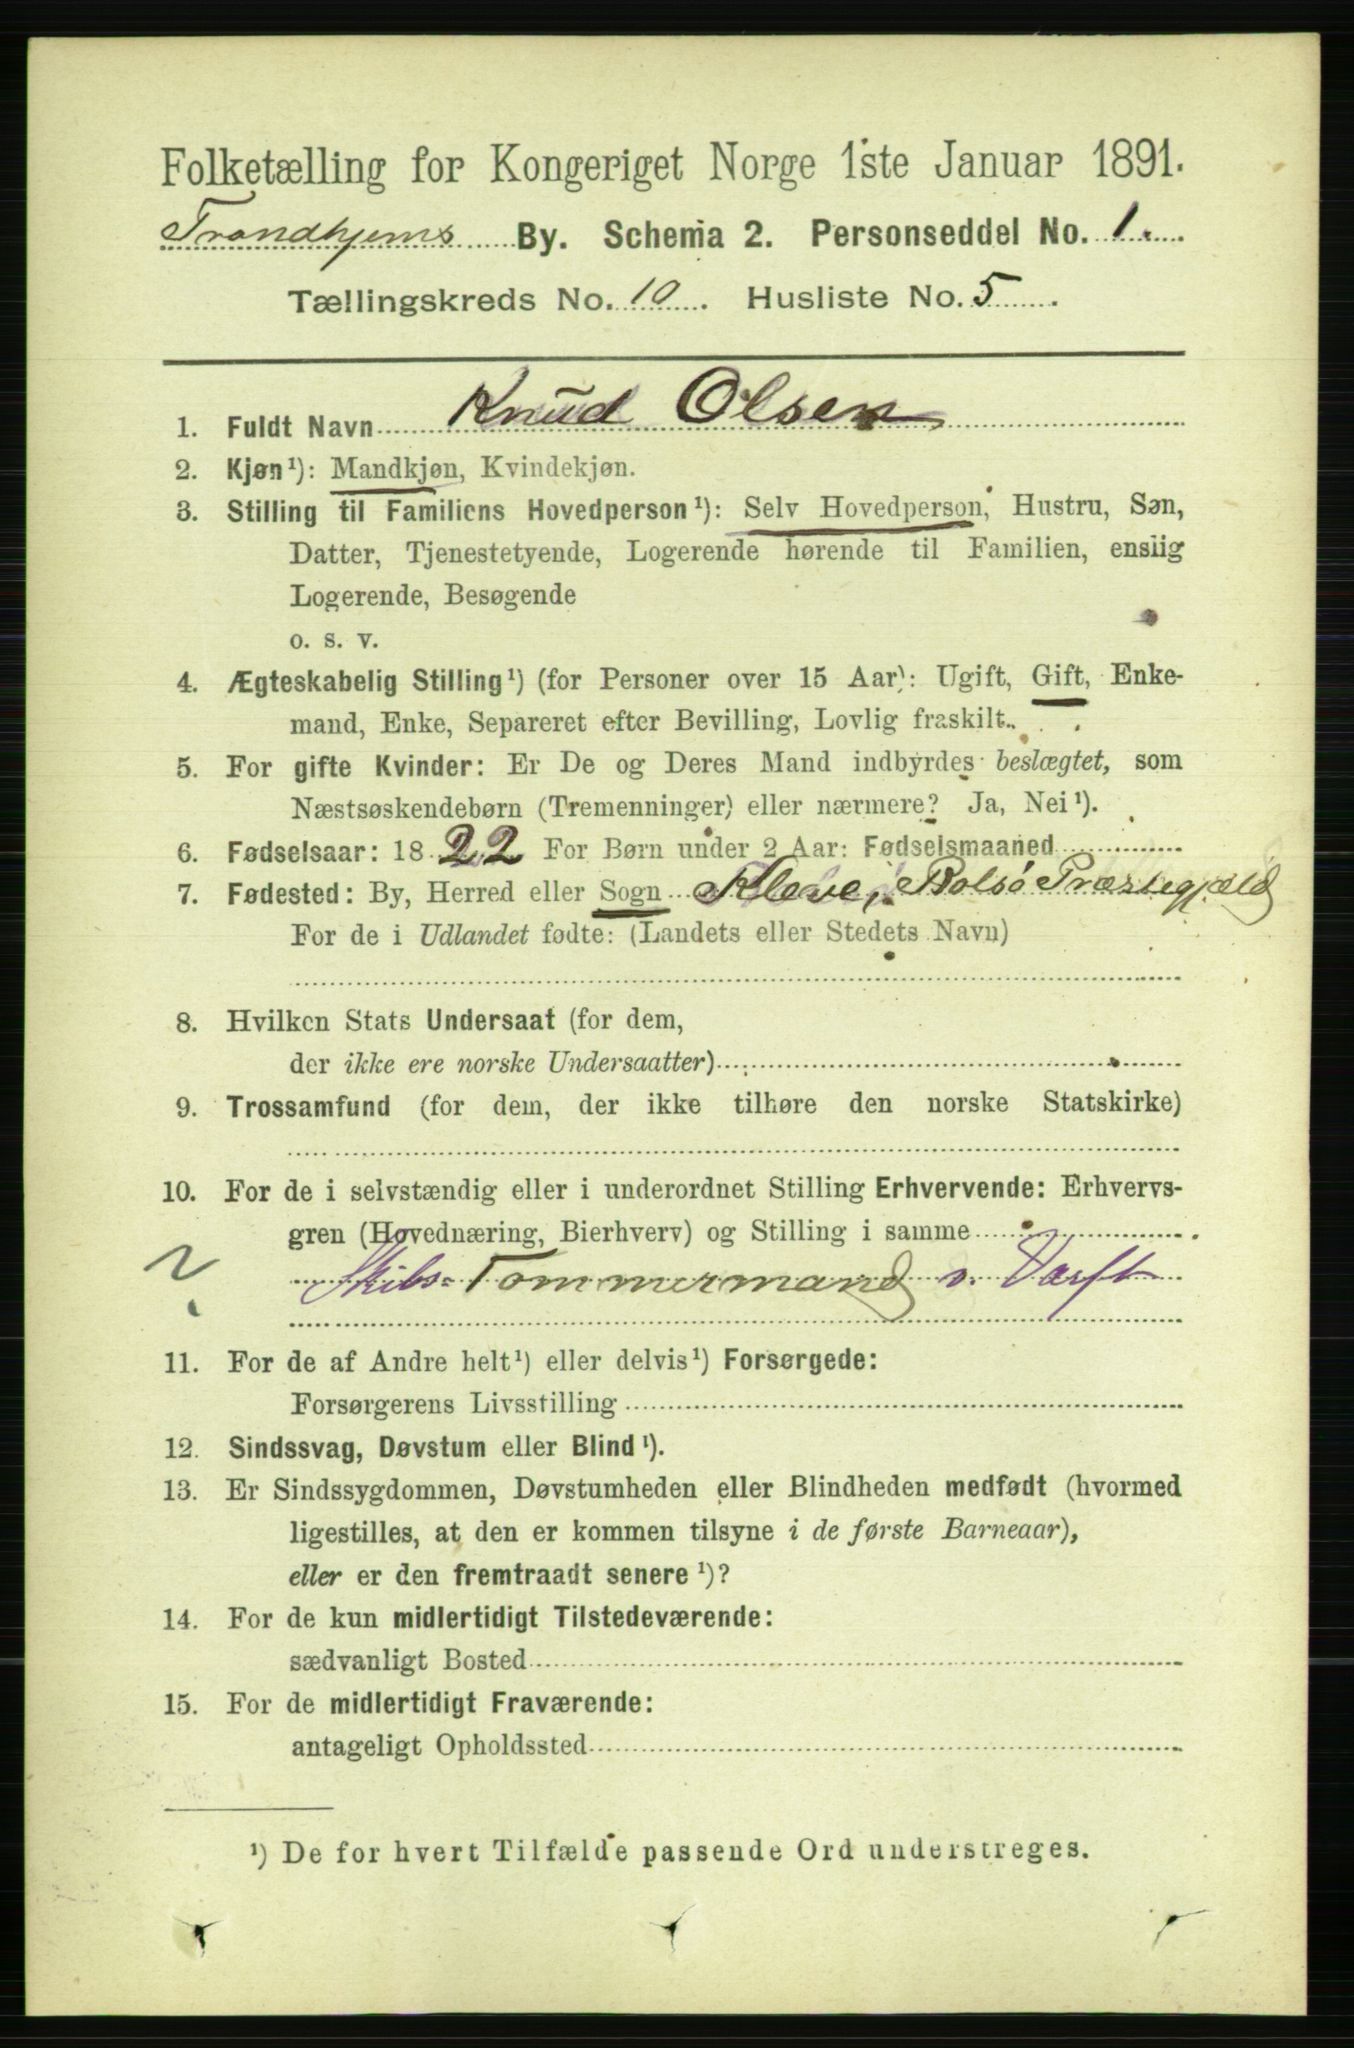 Folketælling for Kongeriget Norge 1ste Januar 1891.
Trondhjems By. Schema 2. Personseddel No. 1.
Tællingskreds No. 10. Husliste No. 5.
1. Fuldt Navn Knud Olsen
2. Kjøn¹): Mandkjøn, Kvindekjøn.
3. Stilling til Familiens Hovedperson¹): Selv Hovedperson, Hustru, Søn,
Datter, Tjenestetyende, Logerende hørende til Familien, enslig
Logerende, Besøgende
o. s. v.
4. Ægteskabelig Stilling¹) (for Personer over 15 Aar): Ugift, Gift, Enke-
mand, Enke, Separeret efter Bevilling, Lovlig fraskilt.
5. For gifte Kvinder: Er De og Deres Mand indbyrdes beslægtet, som
Næstsøskendebørn (Tremenninger) eller nærmere? Ja, Nei¹).
6. Fødselsaar: 1822 For Børn under 2 Aar: Fødselsmaaned
7. Fødested: By, Herred eller Sogn Kleve, Bolsø Præstegjæld
For de i Udlandet fødte: (Landets eller Stedets Navn)
8. Hvilken Stats Undersaat (for dem,
der ikke ere norske Undersaatter)
9. Trossamfund (for dem, der ikke tilhøre den norske Statskirke)
10. For de i selvstændig eller i underordnet Stilling Erhvervende: Erhvervs-
gren (Hovednæring, Bierhverv) og Stilling i samme
? Skibs-Tømmermand v. Værft
11. For de af Andre helt¹) eller delvis¹) Forsørgede:
Forsørgerens Livsstilling
12. Sindssvag, Døvstum eller Blind¹).
13. Er Sindssygdommen, Døvstumheden eller Blindheden medfødt (hvormed
ligestilles, at den er kommen tilsyne i de første Barneaar),
eller er den fremtraadt senere¹)?
14. For de kun midlertidigt Tilstedeværende:
sædvanligt Bosted
15. For de midlertidigt Fraværende:
antageligt Opholdssted
¹) De for hvert Tilfælde passende Ord understreges.